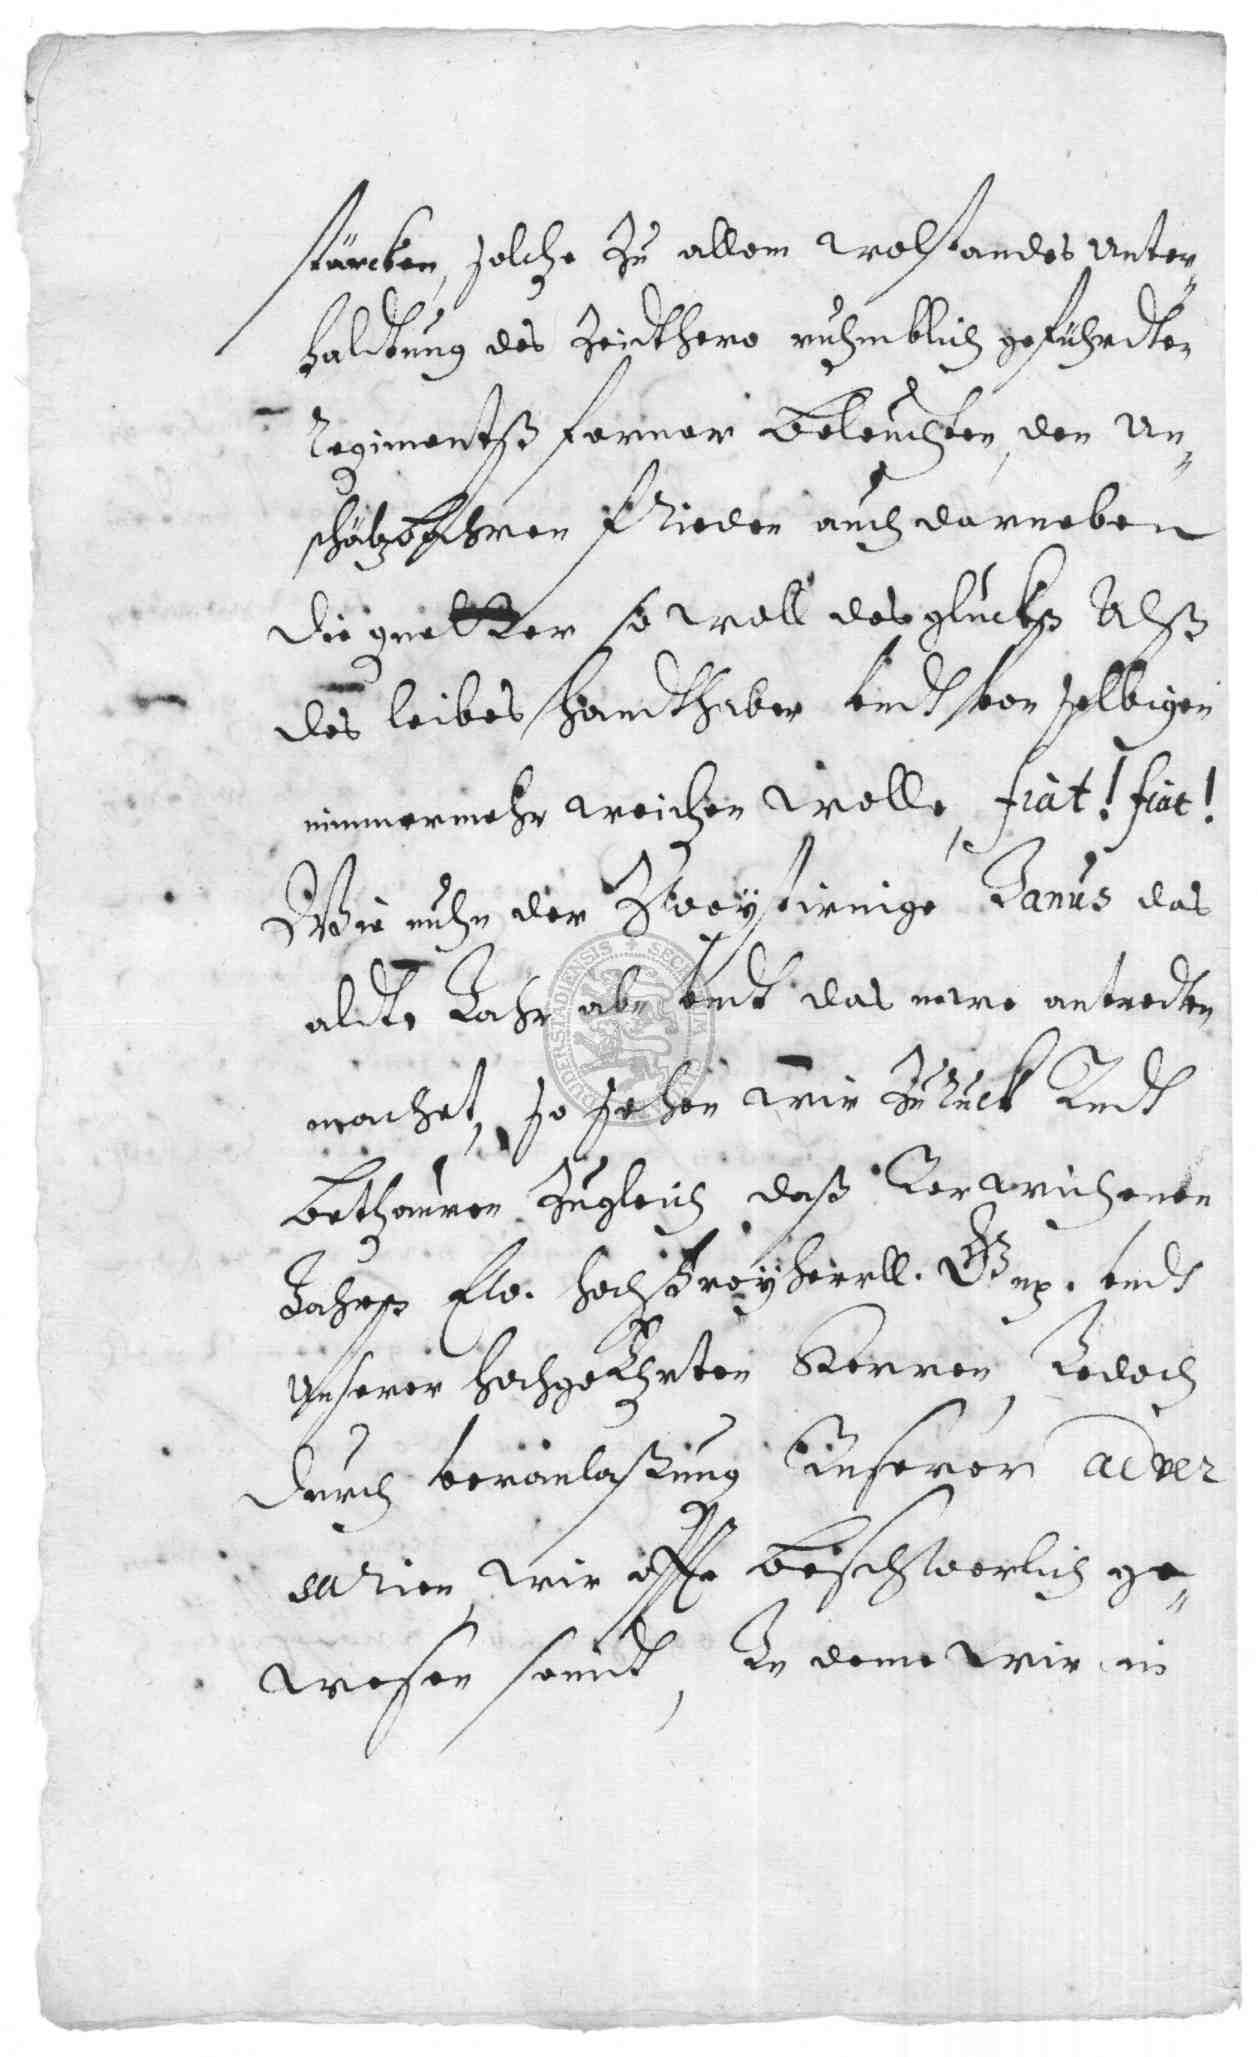 stärcken, solche zu allem wolstandes unter„
haldtung des zeidthero ruhmblich geführdten
Regimentß ferner beleuchten, den un„
schätzbahren frieden auch darneben
die güetter so woll des glückß Alß
des leibes handthaben undt von selbigen
nimmermehr weichen wolle, fiat! fiat!
Wie nuhn der Zweystirnige Janus das
aldte Jahr ab undt das newe antredten
machet, so sehen wir zurück Undt
bethauren zugleich daß Verwichenen
Jahrß Ew. hochfreyherrll. undt
unserer hochgeEhrten Herren, Jedoch
durch veranlaßung Unserer adver
sarien, wir offt beschwerlich ge„
wesen seindt, In deme wir in